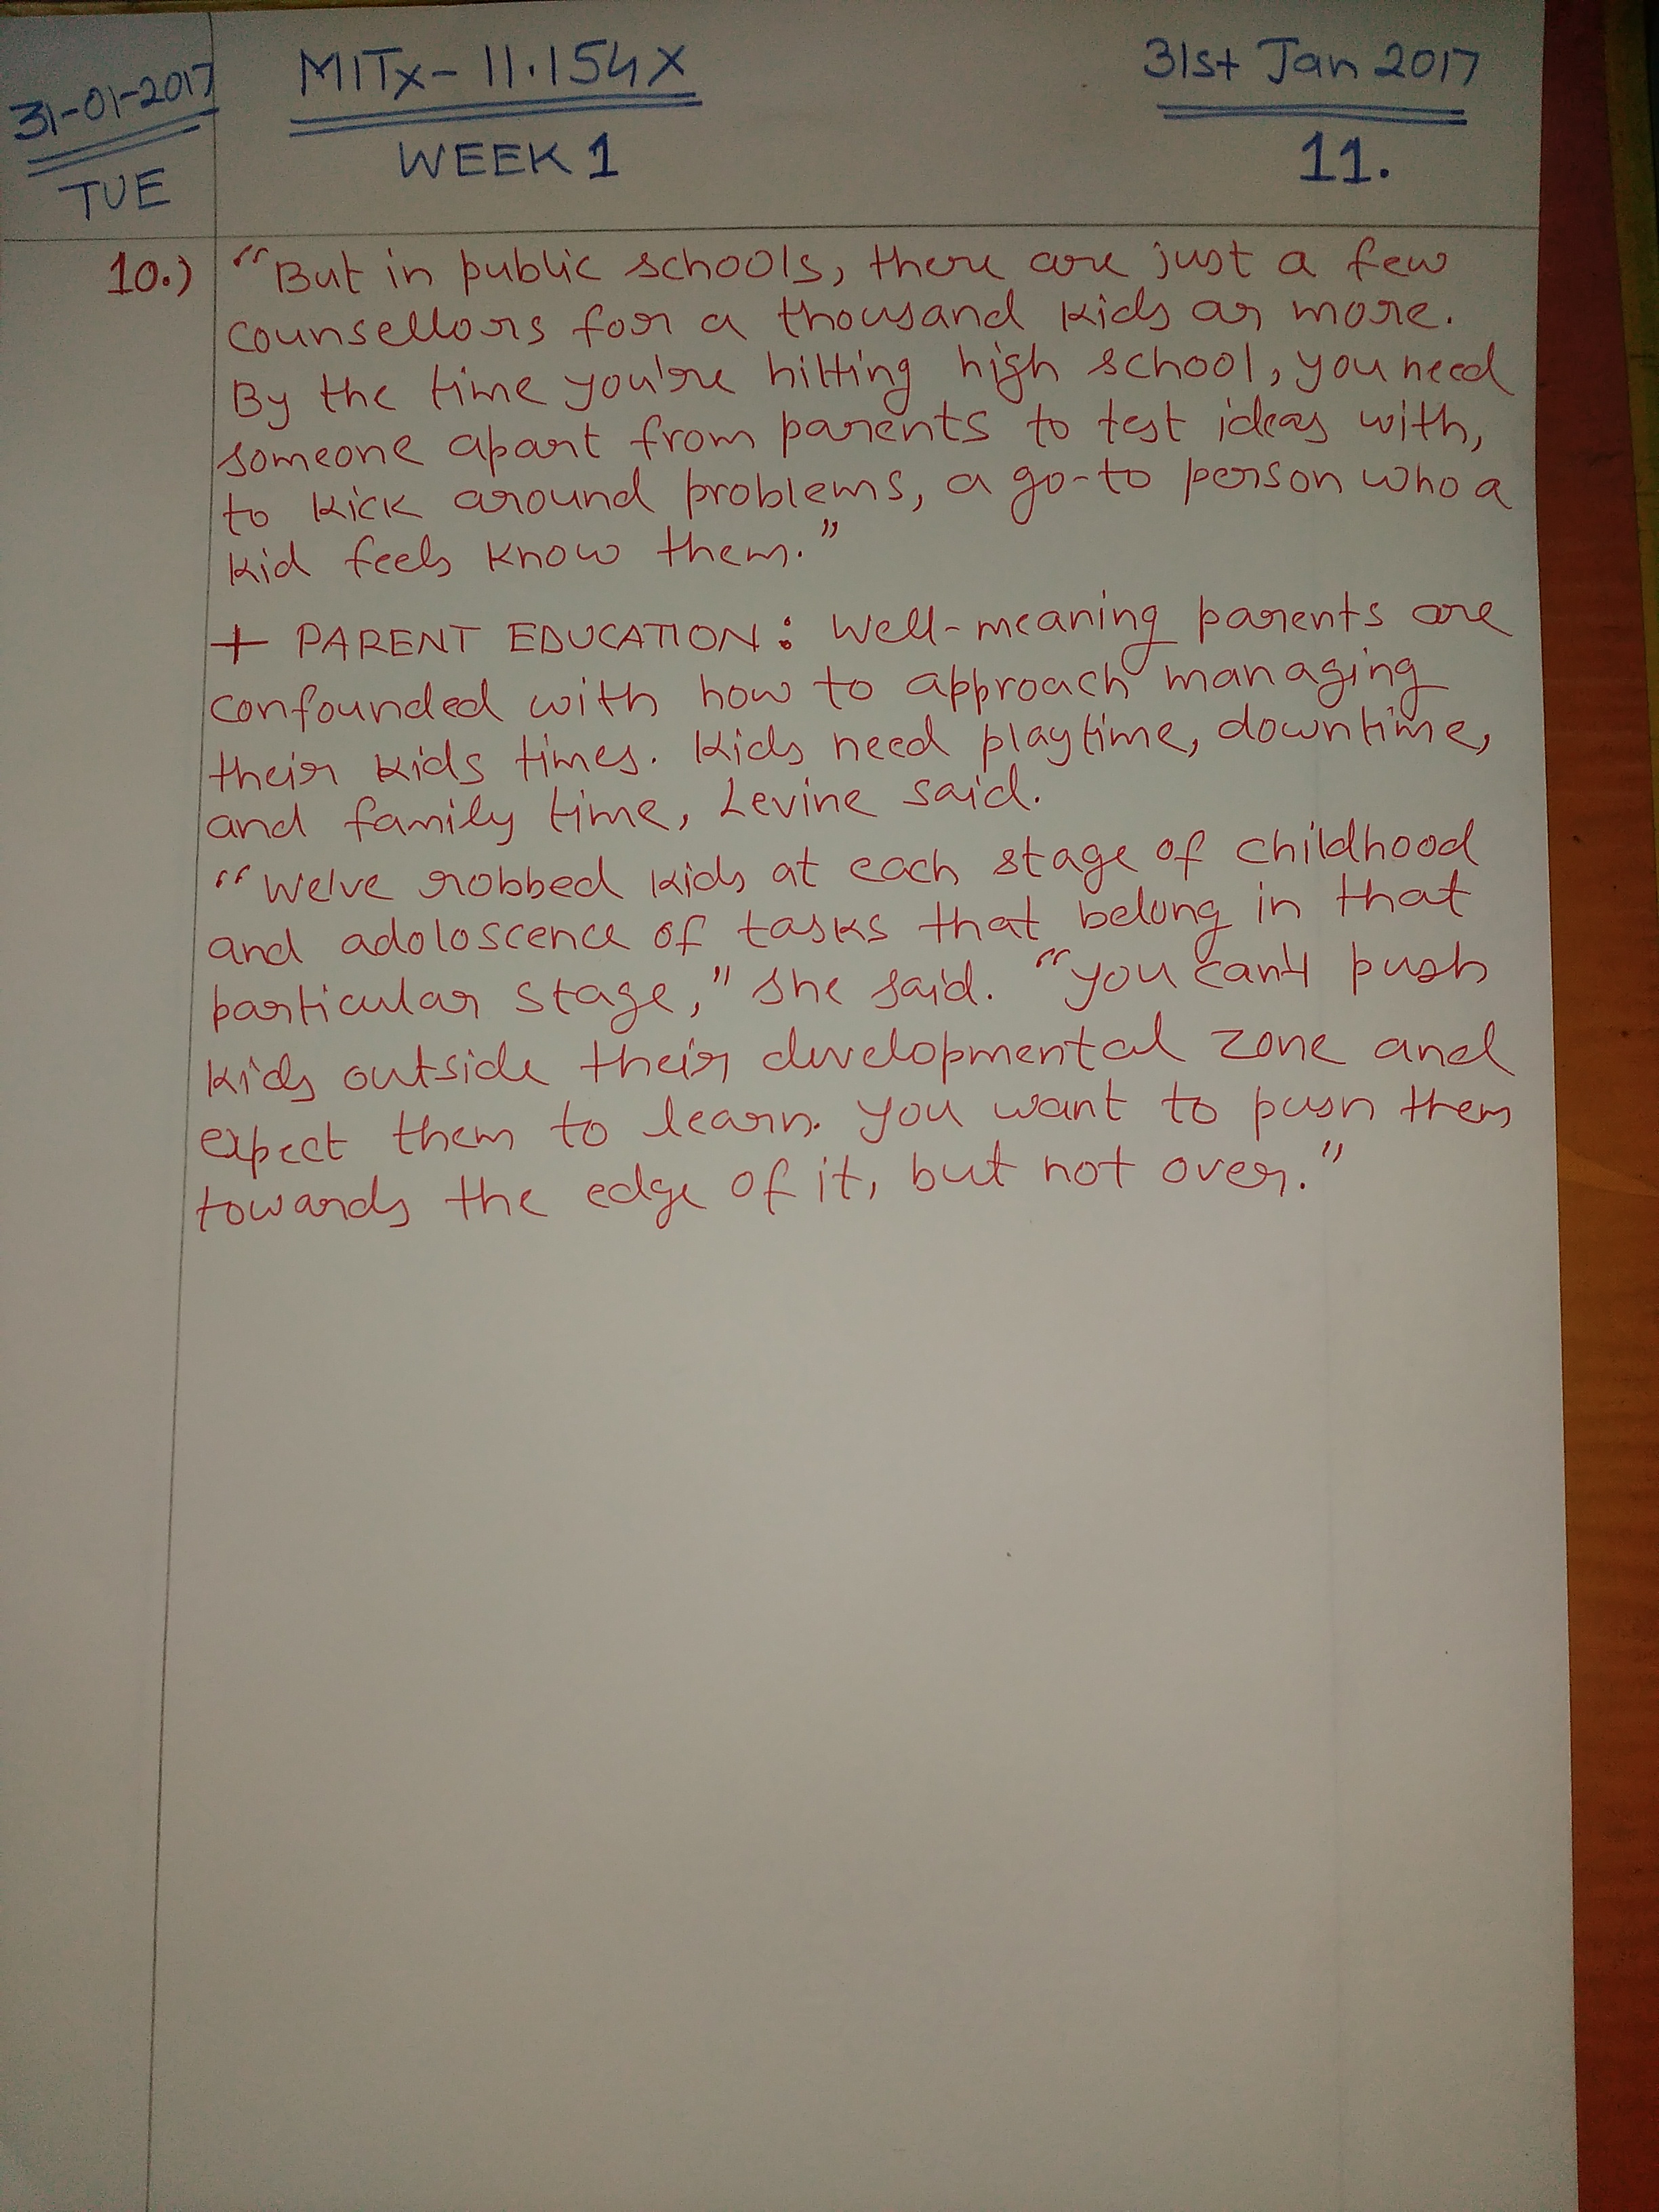 31-01-2017
TUE
MITx- 11.154X
WEEK 1
31st Jan 2017
11.
10.) "But in public schools, there are just a few
counsellors for a thousand kids or more.
By the time you're hitting high school, you need
someone apart from parents to test ideas with,
to kick around problems, a go-to person who a
kid feels know them."
+ PARENT EDUCATION: Well-meaning parents are
confounded with how to approach managing
their kids times. Kids need playtime, downtime,
and family time, Levine said.
"We've robbed kids at each stage of childhood
and adoloscence of tasks that belong in that
particular stage," she said. "You can't push
kids outside their developmental zone and
expect them to learn. You want to push them
towards the edge of it, but not over."